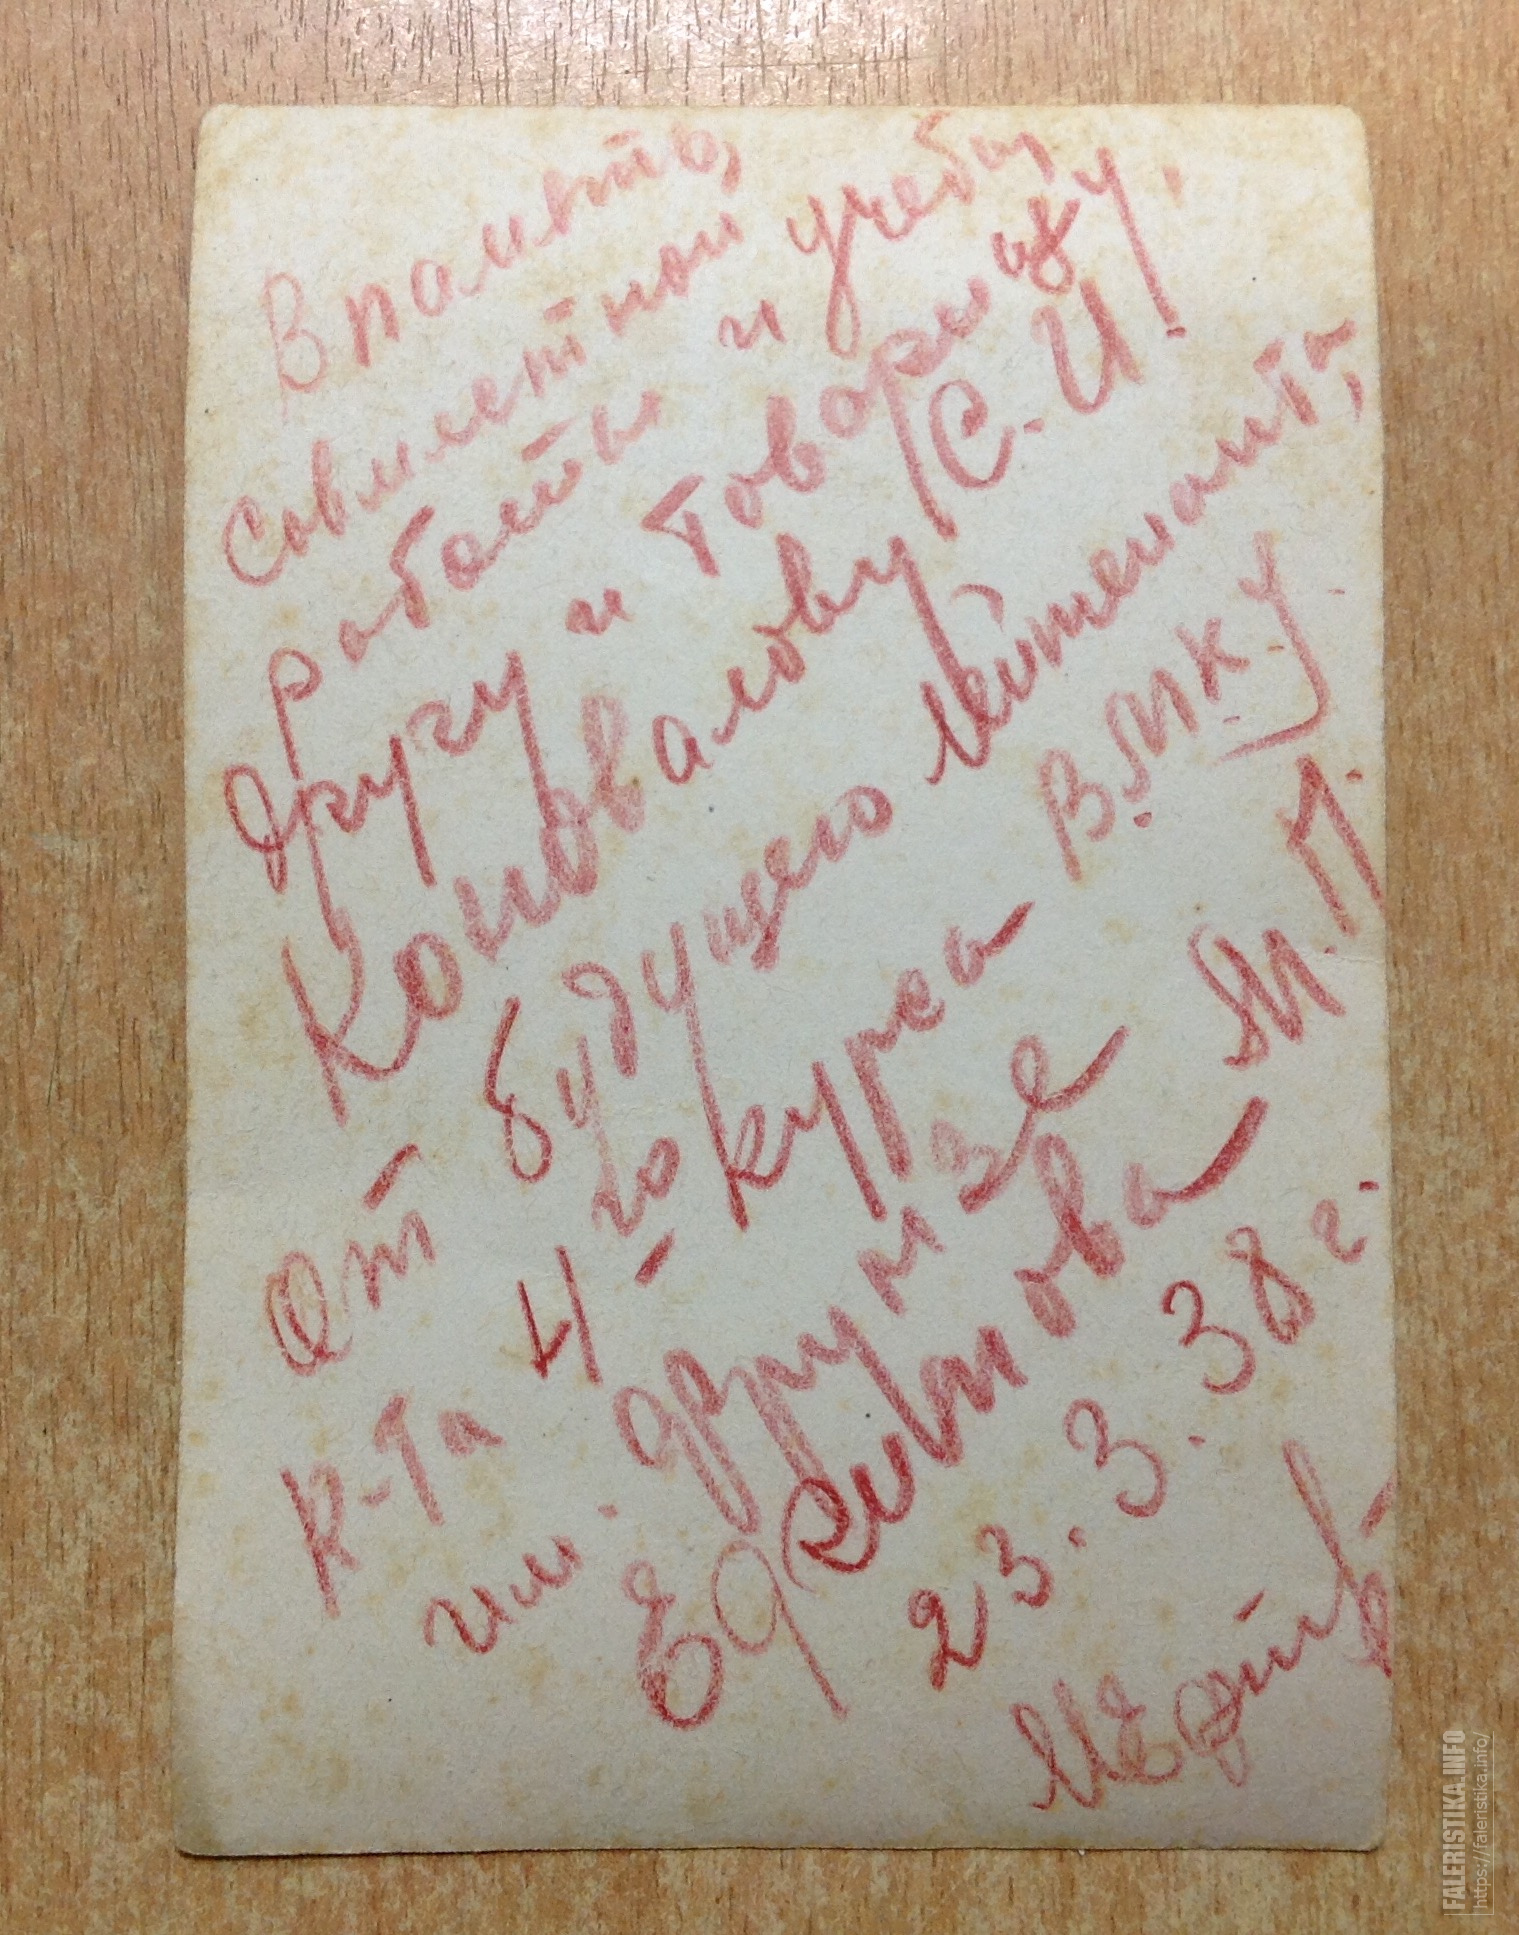 В память,
совместной
работы и учебы,
другу и товарищу
Коновалову С.И.
От будущего лейтенанта,
к-та 4-го курса В.М.К.У
им. Фрунзе
М.П.
23.3.38 г.
FALERISTIKA.INFO
https://faleristika.info/